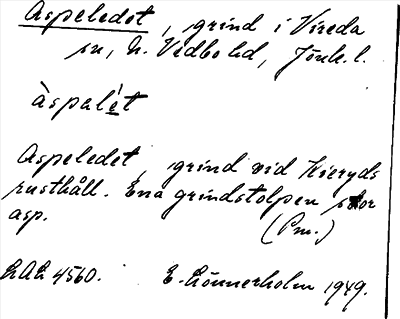 Aspeledet, grind i Vireda
sn, N. Vedbo hd, Jönk. l.
àspalét
Aspeledet, grind vid Kieryds
rusthåll. Ena grindstolpen stor
asp. (Pm.)
LAL 4560. E. Lönnerholm 1949.